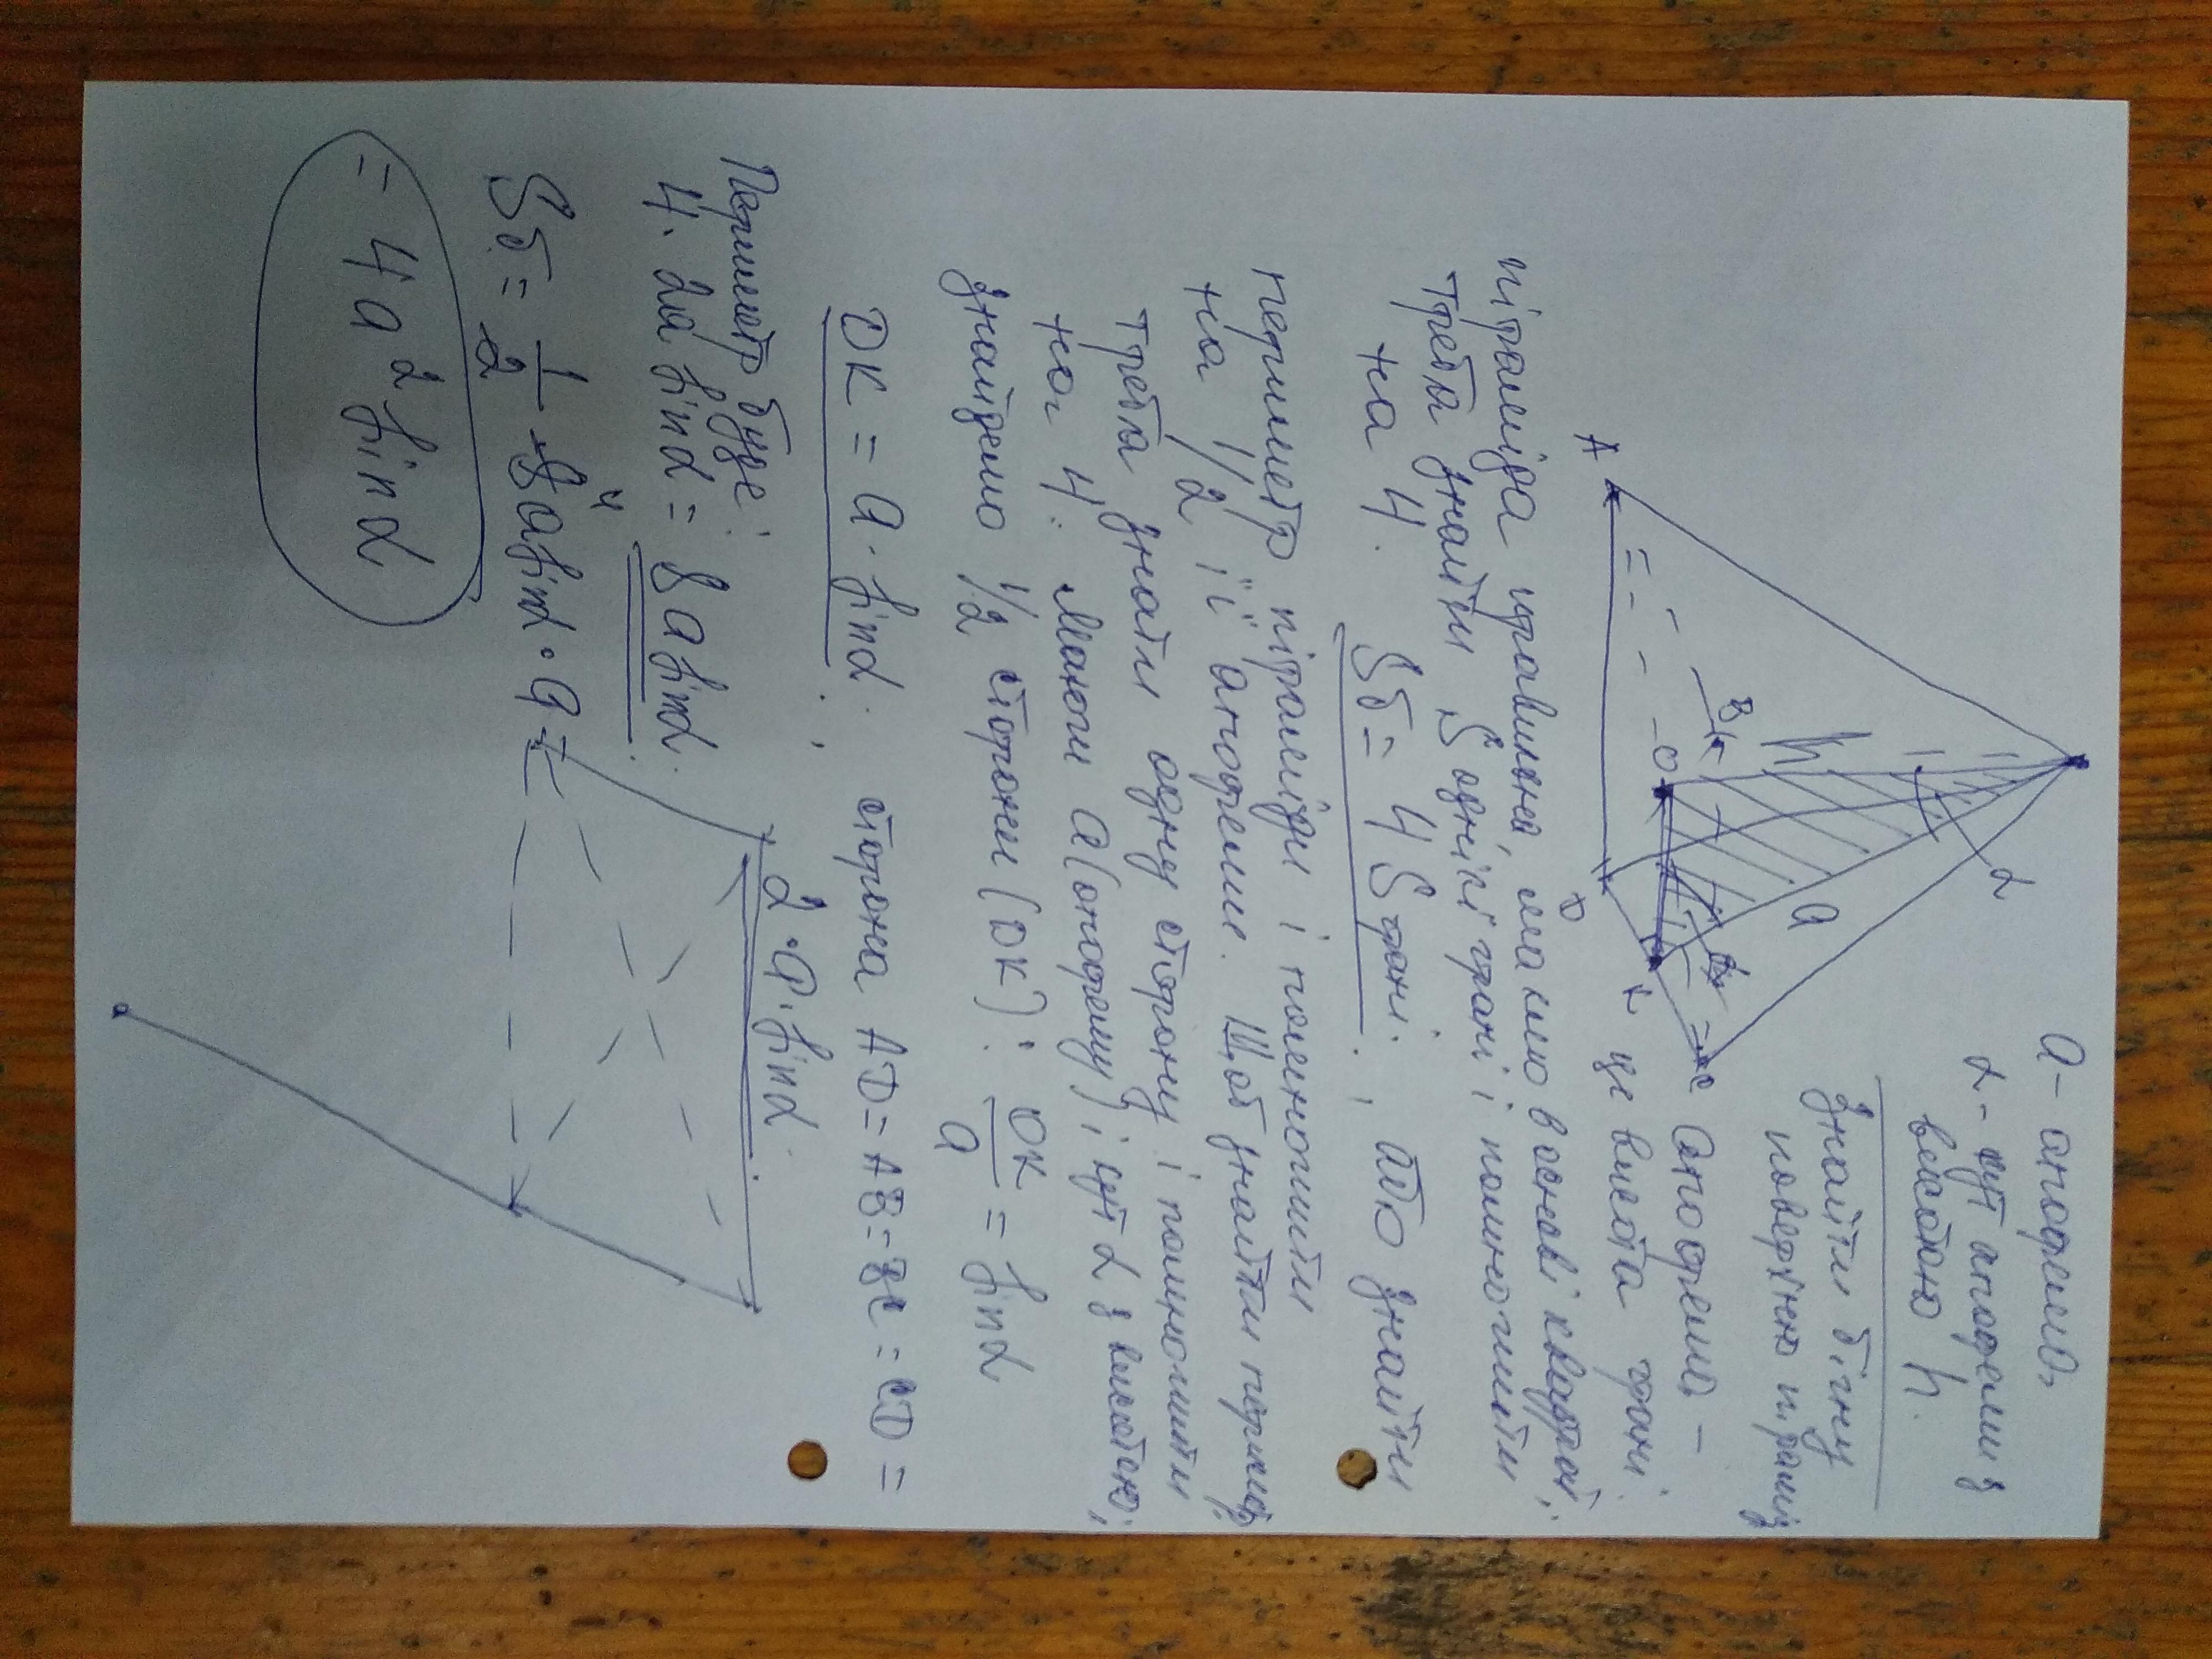 a - апофема,
α - кут апофеми з
висотою h.
Знайти бічну
поверхню піраміди
α
a
h
A
B
C
D
O
K
Апофема -
це висота грані.
піраміда правильна, має в основі квадрат,
треба знайти S однієї грані і помножити
на 4.
Sб = 4 S грані. , або знайти
периметр піраміди і помножити
на 1/2 її апофеми. Щоб знайти периметр
треба знати одну сторону і помножити
на 4. Маючи a (апофему) і кут α з висотою,
знайдемо 1/2 сторони (OK): OK/a = sin α
OK = a · sin α. сторона AD = AB = BC = CD =
2 · a · sin α.
Периметр буде:
4 · 2a sin α = 8 a sin α.
Sб = 1/2 · 8 4 a sin α · a =
= 4a² sin α